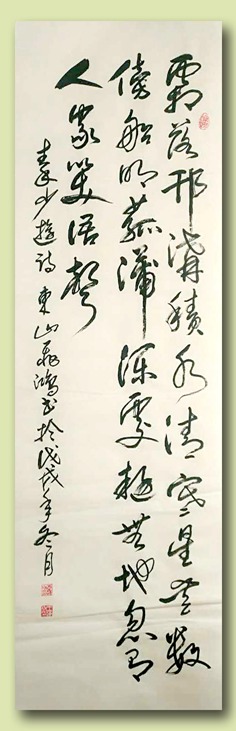 霜落邗溝積水清寒星無數
傍船明菰蒲深處疑無地忽有
人家笑語聲
秦少遊詩 東山 書於戊戌年冬月